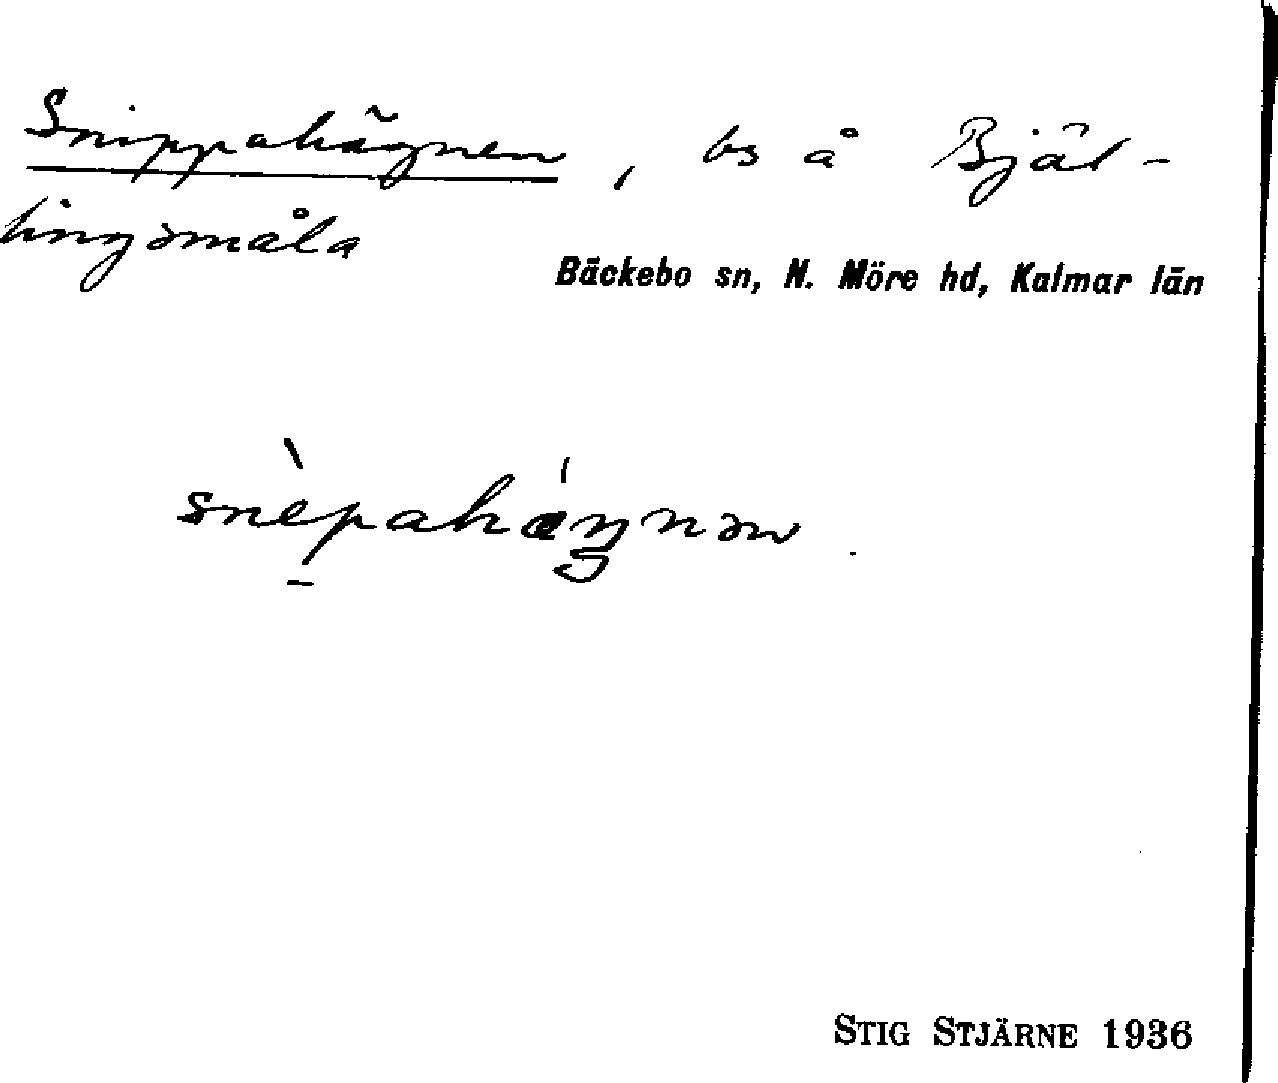 Snippahägnen, bs å Bjäl-
lingsmåla
Bäckebo sn, N. Möre hd, Kalmar län
snèpahǽŋnən.
STIG STJÄRNE 1936